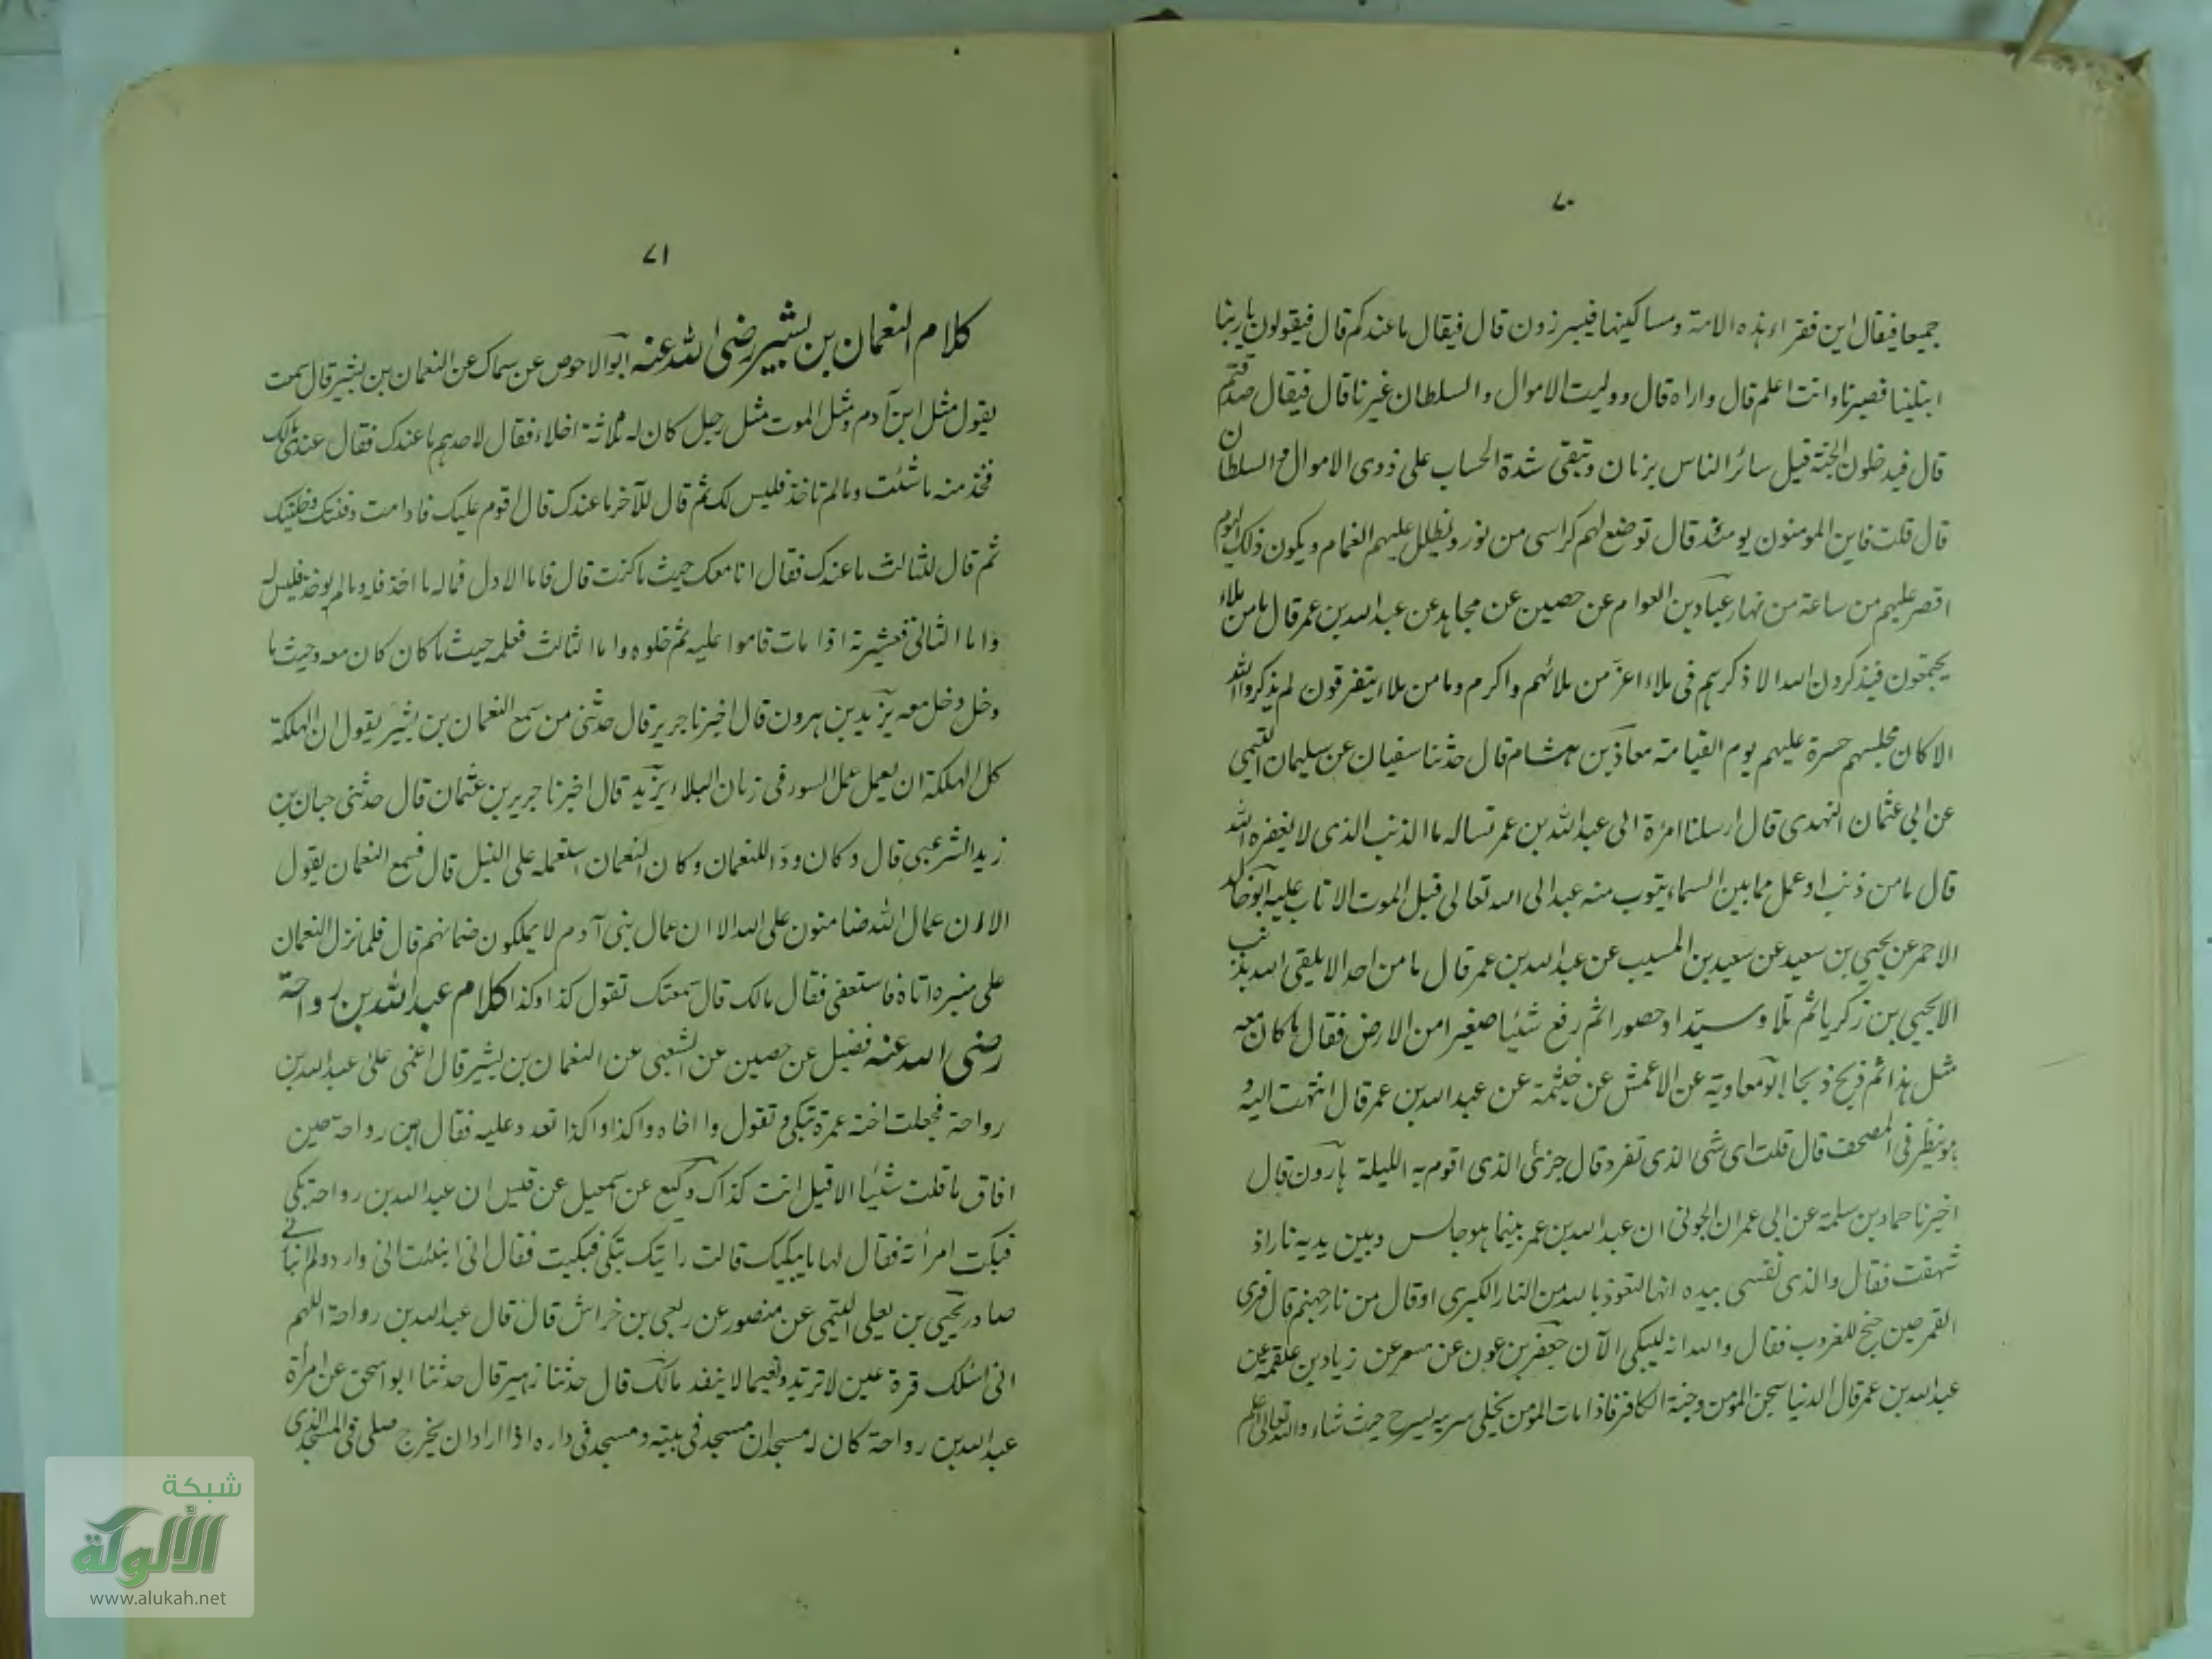 ٧٠
جميعا فيقال اين فقراء هذه الامة ومساكينها فيبرزون قال فيقال ما عندكم قال فيقولون يا ربنا
ابتلينا فصبرنا وانت اعلم قال واراه قال ووليت الاموال والسلطان غيرنا قال فيقال صدقتم
قال فيدخلون الجنة قبل سائر الناس بزمان وتبقى شدة الحساب على ذوى الاموال والسلطان
قال قلت فاين المومنون يومئذ قال توضع لهم كراسى من نور ويظلل عليهم الغمام ويكون ذلك اليوم
اقصر عليهم من ساعة من نهار عباد بن العوام عن حصين عن مجاهد عن عبد الله بن عمر قال ما من ملاء
يجتمعون فيذكرون الله الا ذكرهم فى ملاء اعز من ملائهم واكرم وما من ملاء يتفرقون لم يذكروا الله
الا كان مجلسهم حسرة عليهم يوم القيامة معاذ بن هشام قال حدثنا سفيان عن سليمان التيمى
عن ابى عثمان النهدى قال ارسلنا امرٔة الى عبد الله بن عمر تساله ما الذنب الذى لا يغفره الله
قال ما من ذنب او عمل مما بين السماء يتوب منه عبد الى الله تعالى قبل الموت الا تاب عليه ابو خالد
الاحمر عن يحيى بن سعيد عن سعيد بن المسيب عن عبد الله بن عمر قال ما من احد الا يلقى الله بذنب
الا يحيى بن زكريا ثم تلا وسيّدا وحصورا ثم رفع شيئا صغيرا من الارض فقال ما كان معه
مثل هذا ثم ذبح ذبحا ابو معاوية عن الاعمش عن خيثمة عن عبد الله بن عمر قال انتهت اليه و
هو ينظر فى المصحف قال قلت اى شى الذى تفرد قال جزئى الذى اقوم به الليلة هارون قال
اخبرنا حماد بن سلمة عن ابى عمران الجونى ان عبد الله بن عمر بينما هو جالس وبين يديه نار اذ
شهقت فقال والذى نفسى بيده انها لتعوذ بالله من النار الكبرى او قال من نار جهنم قال فرى
القمر حين جنح للغروب فقال والله انه ليبكى الآن جعفر بن عون عن مسعر عن زياد بن علقمة عن
عبد الله بن عمر قال الدنيا سجن المؤمن وجنة الكافر فاذا مات المؤمن يخلى سربه يسرح حيث شاء والله تعالى اعلم
٧١
كلام النعمان بن بشير رضى الله عنه ابو الاحوص عن سماك عن النعمان بن بشير قال سمعت
يقول مثل ابن آدم ومثل الموت مثل رجل كان له ثلاثة اخلاء فقال لاحدهم ما عندك فقال عندى مالك
فخذ منه ما شئت وما لم تاخذ فليس لك ثم قال للآخر ما عندك قال اقوم عليك فاذا مت دفنتك وخليتك
ثم قال للثالث ما عندك فقال انا معك حيث ما كنت قال فاما الاول فماله ما اخذ فله وما لم يوخذ فليس له
واما الثانى فعشيرته اذا مات قاموا عليه ثم خلوه واما الثالث فعلمه حيث ما كان كان معه وحيث ما
دخل دخل معه يزيد بن هرون قال اخبرنا جرير قال حدثنى من سمع النعمان بن بشير يقول ان الهلكة
كل الهلكة ان يعمل عمل السوء فى زمان البلاء يزيد قال اخبرنا جرير بن عثمان قال حدثنى حبان بن
زيد الشرعبى قال وكان ودّ اللنعمان وكان النعمان استعمله على النبل قال فسمع النعمان يقول
الا ان عمال الله ضامنون على الله الا ان عمال بنى آدم لا يملكون ضمانهم قال فلما نزل النعمان
على منبره اتاه فاستعفى فقال مالك قال سمعتك تقول كذا وكذا كلام عبد الله بن رواحة
رضى الله عنه فضيل عن حصين عن الشعبى عن النعمان بن بشير قال اغمى على عبد الله بن
رواحة فجعلت اخته عمرة تبكى وتقول وا اخاه وا كذا وا كذا تعدد عليه فقال ابن رواحة حين
افاق ما قلت شيئا الا قيل انت كذاك وكيع عن اسمعيل عن قيس ان عبد الله بن رواحة بكى
فبكت امرأته فقال لها ما يبكيك قالت رايتك تبكى فبكيت فقال انى انبئت انى وارد ولم انبأ انى
صادر يحيى بن يعلى التيمى عن منصور عن ربعى بن خراش قال قال عبد الله بن رواحة اللهم
انى اسئلك قرة عين لا ترتد ونعيما لا ينفد مالك قال حدثنا زهير قال حدثنا ابو اسحق عن امرأة
عبد الله بن رواحة كان له مسجدان مسجد فى بيته ومسجد فى داره اذا اراد ان يخرج صلى فى المسجد الذى
شبكة
الألوكة
www.alukah.net